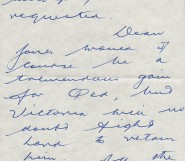 requested.
Dean
Jones would of
course be a
tremendous gain
for Qld, but
Victoria will no
doubt fight
hard to retain
him. the